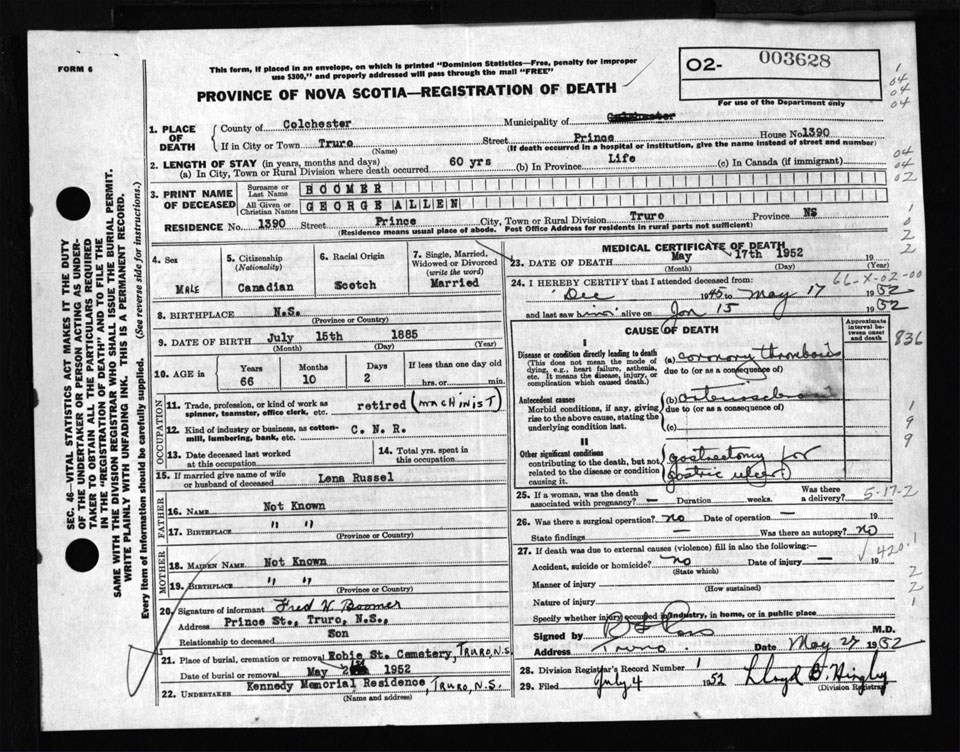 FORM 6
This form, if placed in an envelope, on which is printed "Dominion Statistics—Free, penalty for improper
use $300," and properly addressed will pass through the mail "FREE"
PROVINCE OF NOVA SCOTIA—REGISTRATION OF DEATH
O2- 003628
For use of the Department only
1. PLACE OF DEATH
County of Colchester Municipality of Colchester
If in City or Town Truro (Name) Street Prince House No. 1390
(If death occurred in a hospital or institution, give the name instead of street and number)
2. LENGTH OF STAY (in years, months and days)
(a) In City, Town or Rural Division where death occurred 60 yrs (b) In Province Life (c) In Canada (if immigrant)
3. PRINT NAME OF DECEASED
Surname or Last Name BOOMER
All Given or Christian Names GEORGE ALLEN
RESIDENCE No. 1390 Street Prince City, Town or Rural Division Truro Province NS
(Residence means usual place of abode. Post Office Address for residents in rural parts not sufficient)
4. Sex
MALE
5. Citizenship (Nationality)
Canadian
6. Racial Origin
Scotch
7. Single, Married, Widowed or Divorced (write the word)
Married
8. BIRTHPLACE N.S.
(Province or Country)
9. DATE OF BIRTH July 15th 1885
(Month) (Day) (Year)
10. AGE in Years Months Days If less than one day old
66 10 2 hrs. or min.
OCCUPATION
11. Trade, profession, or kind of work as spinner, teamster, office clerk, etc. retired (MACHINIST)
12. Kind of industry or business, as cotton-mill, lumbering, bank, etc. C. N. R.
13. Date deceased last worked at this occupation
14. Total yrs. spent in this occupation
15. If married give name of wife or husband of deceased Lena Russel
FATHER
16. NAME Not Known
17. BIRTHPLACE " "
(Province or Country)
MOTHER
18. MAIDEN NAME Not Known
19. BIRTHPLACE " "
(Province or Country)
20. Signature of informant Fred K. Boomer
Address Prince St., Truro, N.S.,
Relationship to deceased Son
21. Place of burial, cremation or removal Robie St. Cemetery, TRURO, N.S.
Date of burial or removal May 1952
22. UNDERTAKER Kennedy Memorial Residence, TRURO, N.S.
(Name and address)
MEDICAL CERTIFICATE OF DEATH
23. DATE OF DEATH May 17th 1952
(Month) (Day) (Year)
24. I HEREBY CERTIFY that I attended deceased from: 66-X-02-00
Dec 1945 to May 17 1952
and last saw him alive on Jan 15 1952
CAUSE OF DEATH
Approximate interval between onset and death
836
I
Disease or condition directly leading to death
(This does not mean the mode of dying, e.g., heart failure, asthenia, etc. It means the disease, injury, or complication which caused death.)
(a) coronary thrombosis
due to (or as a consequence of)
Antecedent causes
Morbid conditions, if any, giving rise to the above cause, stating the underlying condition last.
(b)
due to (or as a consequence of)
(c)
II
Other significant conditions
contributing to the death, but not related to the disease or condition causing it.
gastrectomy for
gastric ulcer
25. If a woman, was the death associated with pregnancy? — Duration weeks. Was there a delivery? 5-17-2
26. Was there a surgical operation? no Date of operation — 19
State findings Was there an autopsy? no
27. If death was due to external causes (violence) fill in also the following:— 420.1
Accident, suicide or homicide? no Date of injury — 19
(State which)
Manner of injury
(How sustained)
Nature of injury
Specify whether injury occurred in industry, in home, or in public place
Signed by M.D.
Address Truro Date May 27 1952
28. Division Registrar's Record Number 1
29. Filed July 4 1952
(Division Registrar)
SEC. 46—VITAL STATISTICS ACT MAKES IT THE DUTY
OF THE UNDERTAKER OR PERSON ACTING AS UNDERTAKER TO OBTAIN ALL THE PARTICULARS REQUIRED
IN THE "REGISTRATION OF DEATH" AND TO FILE THE
SAME WITH THE DIVISION REGISTRAR WHO SHALL ISSUE THE BURIAL PERMIT.
WRITE PLAINLY WITH UNFADING INK. THIS IS A PERMANENT RECORD.
Every item of information should be carefully supplied. (See reverse side for instructions.)